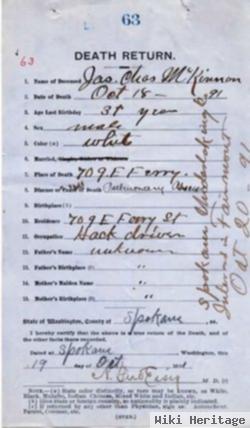 63
63
DEATH RETURN.
1. Name of Deceased Jas. Chas McKinnon
2. Date of Death Oct 18 - 91
3. Age Last Birthday 35 years
4. Sex male
5. Color (a) white
6. Married, Single, Widow or Widower
7. Place of Death 709 E Ferry
8. Disease or Cause of Death Pulmonary
9. Birthplace (b)
10. Residence 709 E Ferry St
11. Occupation Hack driver
12. Father's Name unknown
13. Father's Birthplace (b) "
14. Mother's Maiden Name "
15. Mother's Birthplace (b) "
State of Washington, County of Spokane, ss.
I hereby certify that the above is a true return of the Death, and of
the other facts therein recorded.
Dated at Spokane Washington, this
19 day of Oct 1891
M. D. (c)
NOTE.—(a) State color distinctly, so race may be known, as White,
Black, Mulatto, Indian, Chinese, Mixed White and Indian, etc.
(b) Give state or foreign country, so nationality is plainly indicated
(c) If returned by any other than Physician, sign as
Parent, Coroner, etc.
(OVER.)
Spokane Undertaking Co
Interred in Fairmount
Oct 20 91
Wiki Heritage